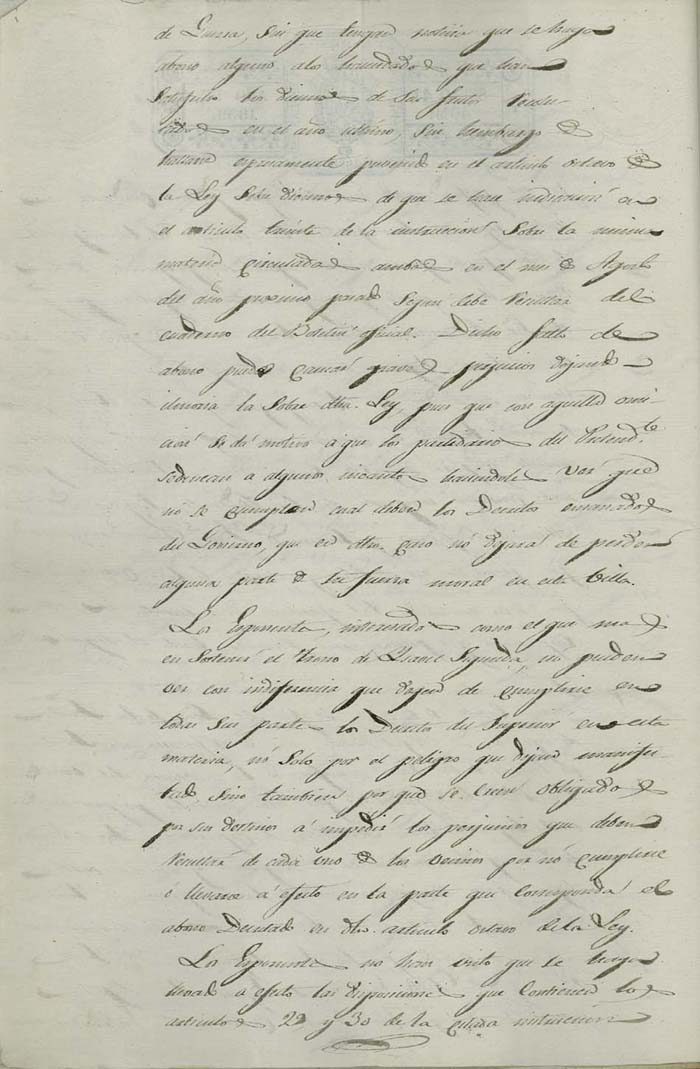 de Guerra, sin que tengan noticia que se haya
abono alguno a los hacendados que han
satisfecho los diezmos de sus frutos recolec-
tados en el año ultimo, sin hembargo de
hallarse expresamente prevenido en el articulo octavo de
la Ley sobre diezmos de que se hace indicacion en
el articulo treinta de la instruccion sobre la misma
materia circuladas ambas en el mes de Agosto
del año procsimo pasado segun debe resultar del
cuaderno del Boletin oficial. Dicha falta de
abono puede causar graves perjuicios dejando
ilusoria la sobre dha. Ley, pues que con aquella omi-
cion se dá motivo á que los partidarios del Pretend.te
seduzcan a algunos incautos haciendoles ver que
no se cumplen cual deben los Decretos emanados
del Govierno, que en dho. caso no dejará de perder
alguna parte de su fuerza moral en esta Villa.
Los Esponentes, interesados como el que mas
en sostener el Trono de Ysavel Segunda, no pueden
ver con indiferencia que dejen de cumplirse en
todas sus partes los Decretos del Superior en esta
materia, nó solo por el peligro que dejan manifes-
tado, sino tambien por que se creen obligados
por sus destinos á impedir los perjuicios que deben
resultar de cada uno de los vecinos por nó cumplirse
o llevarse á efecto en la parte que corresponda el
abono Decretado en dho. articulo octavo de la Ley.
Los Esponentes no han visto que se haya
llevado a efecto las disposiciones que contienen los
articulos 29 y 30 de la citada instruccion